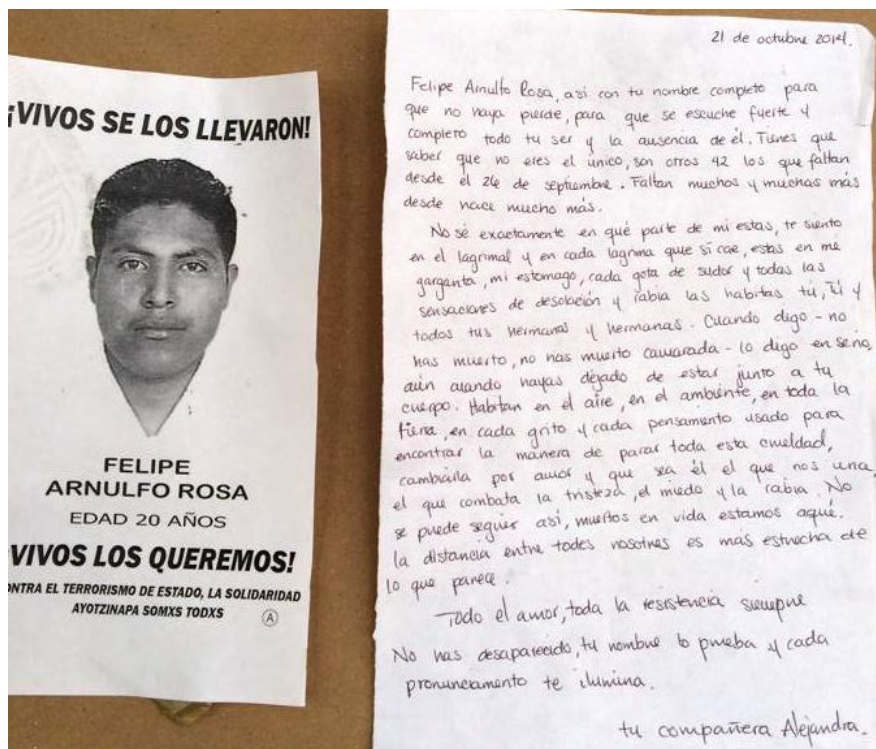 ¡VIVOS SE LOS LLEVARON!
FELIPE
ARNULFO ROSA
EDAD 20 AÑOS
VIVOS LOS QUEREMOS!
ONTRA EL TERRORISMO DE ESTADO, LA SOLIDARIDAD
AYOTZINAPA SOMXS TODXS
A
21 de octubre 2014.
Felipe Arnulfo Rosa, asi con tu nombre completo para
que no haya pierde, para que se escuche fuerte y
completo todo tu ser y la ausencia de él. Tienes que
saber que no eres el único, son otros 42 los que faltan
desde el 26 de septiembre. Faltan muchos y muchas más
desde hace mucho más.
No sé exactamente en qué parte de mi estas, te siento
en el lagrimal y en cada lagrima que si cae, estas en mi
garganta, mi estomago, cada gota de sudor y todas las
sensaciones de desolación y rabia las habitas tú, tú y
todos tus hermanos y hermanas. Cuando digo - no
has muerto, no has muerto camarada - lo digo en serio,
aún cuando hayas dejado de estar junto a tu
cuerpo. Habitan en el aire, en el ambiente, en toda la
tierra, en cada grito y cada pensamiento usado para
encontrar la manera de parar toda esta crueldad,
cambiarla por amor y que sea él el que nos una,
el que combata la tristeza, el miedo y la rabia. No
se puede seguir así, muertos en vida estamos aquí.
la distancia entre todes nosotres es más estrecha de
lo que parece.
Todo el amor, toda la resistencia siempre
No has desaparecido, tu nombre lo prueba y cada
pronunciamento te ilumina.
tu compañera Alejandra.